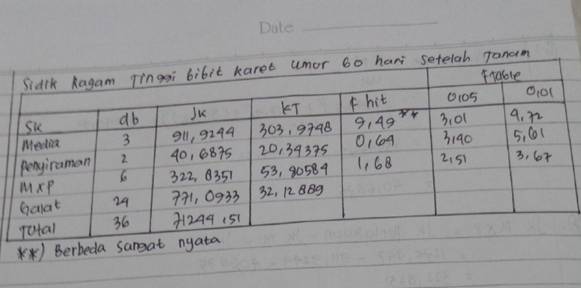 Date
Sidik Ragam Tinggi bibit karet umur 60 hari setelah Tanam
SK db JK KT F hit Ftable
0,05 0,01
Media 3 911,9244 303,9748 9,49** 3,01 4,72
Penyiraman 2 40,6875 20,34375 0,64 3,40 5,61
MXP 6 322,8351 53,80584 1,68 2,51 3,67
Galat 24 771,0933 32,12889
Total 36 71244,51
**) Berbeda sangat nyata